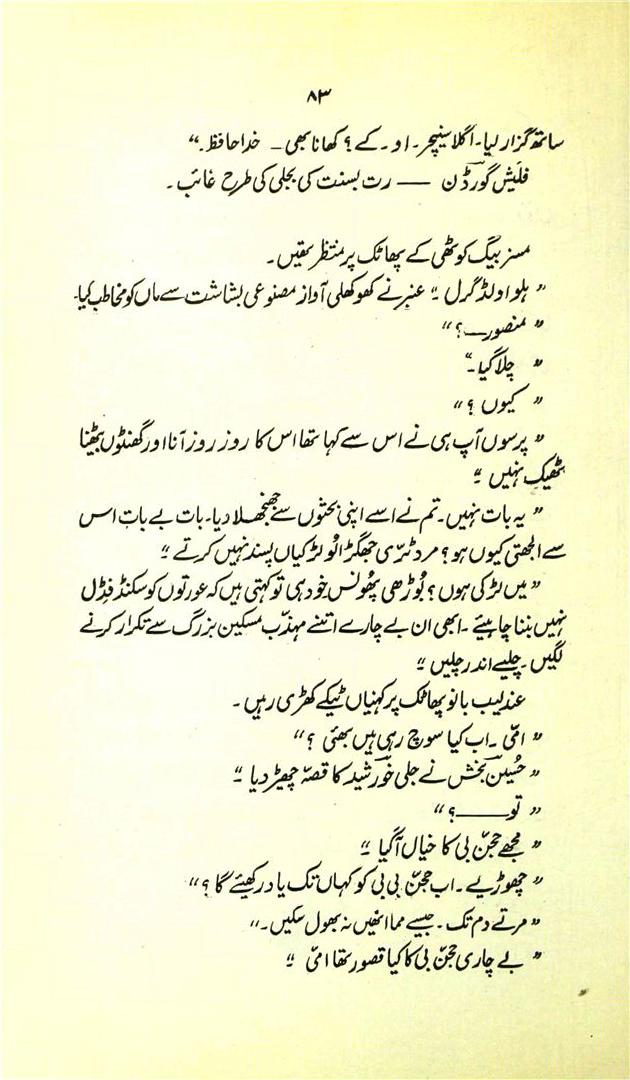 ۸۳
ساتھ گزار لیا۔ اگلا سنیچر۔ او۔ کے؟ کھانا بھی — خدا حافظ۔"
فلیش گورڈن —— رت بسنت کی بجلی کی طرح غائب۔
مسز بیگ کوٹھی کے پھاٹک پر منتظر تھیں۔
" ہلو اولڈ گرل " عنبر نے کھوکھلی آواز مصنوعی بشاشت سے ماں کو مخاطب کیا۔
" منصور —؟ "
" چلا گیا۔ "
" کیوں؟ "
" پرسوں آپ ہی نے اس سے کہا تھا اس کا روز روز آنا اور گھنٹوں بیٹھنا
ٹھیک نہیں "
" یہ بات نہیں۔ تم نے اسے اپنی بحثوں سے جھنجھلا دیا۔ بات بے بات اس
سے الجھتی کیوں ہو؟ مرد ٹرّی جھگڑالو لڑکیاں پسند نہیں کرتے "
" میں لڑکی ہوں؟ بوڑھی پھونس خود ہی تو کہتی ہیں کہ عورتوں کو سکنڈ فڈل
نہیں بننا چاہیئے۔ ابھی ان بے چارے اتنے مہذّب مسکین بزرگ سے تکرار کرنے
لگیں۔ چلیے اندر چلیں "
عندلیب بانو پھاٹک پر کہنیاں ٹیکے کھڑی رہیں۔
" امّی۔ اب کیا سوچ رہی ہیں بھئی؟ "
" حُسین بخش نے جلی خورشید کا قصّہ چھیڑ دیا "
" تو ——؟ "
" مجھے حجّن بی کا خیال آگیا "
" چھوڑیے۔ اب حجّن بی بی کو کہاں تک یاد رکھیئے گا؟ "
" مرتے دم تک۔ جیسے مما انھیں نہ بھول سکیں۔ "
" بے چاری حجّن بی کا کیا قصور تھا امّی "